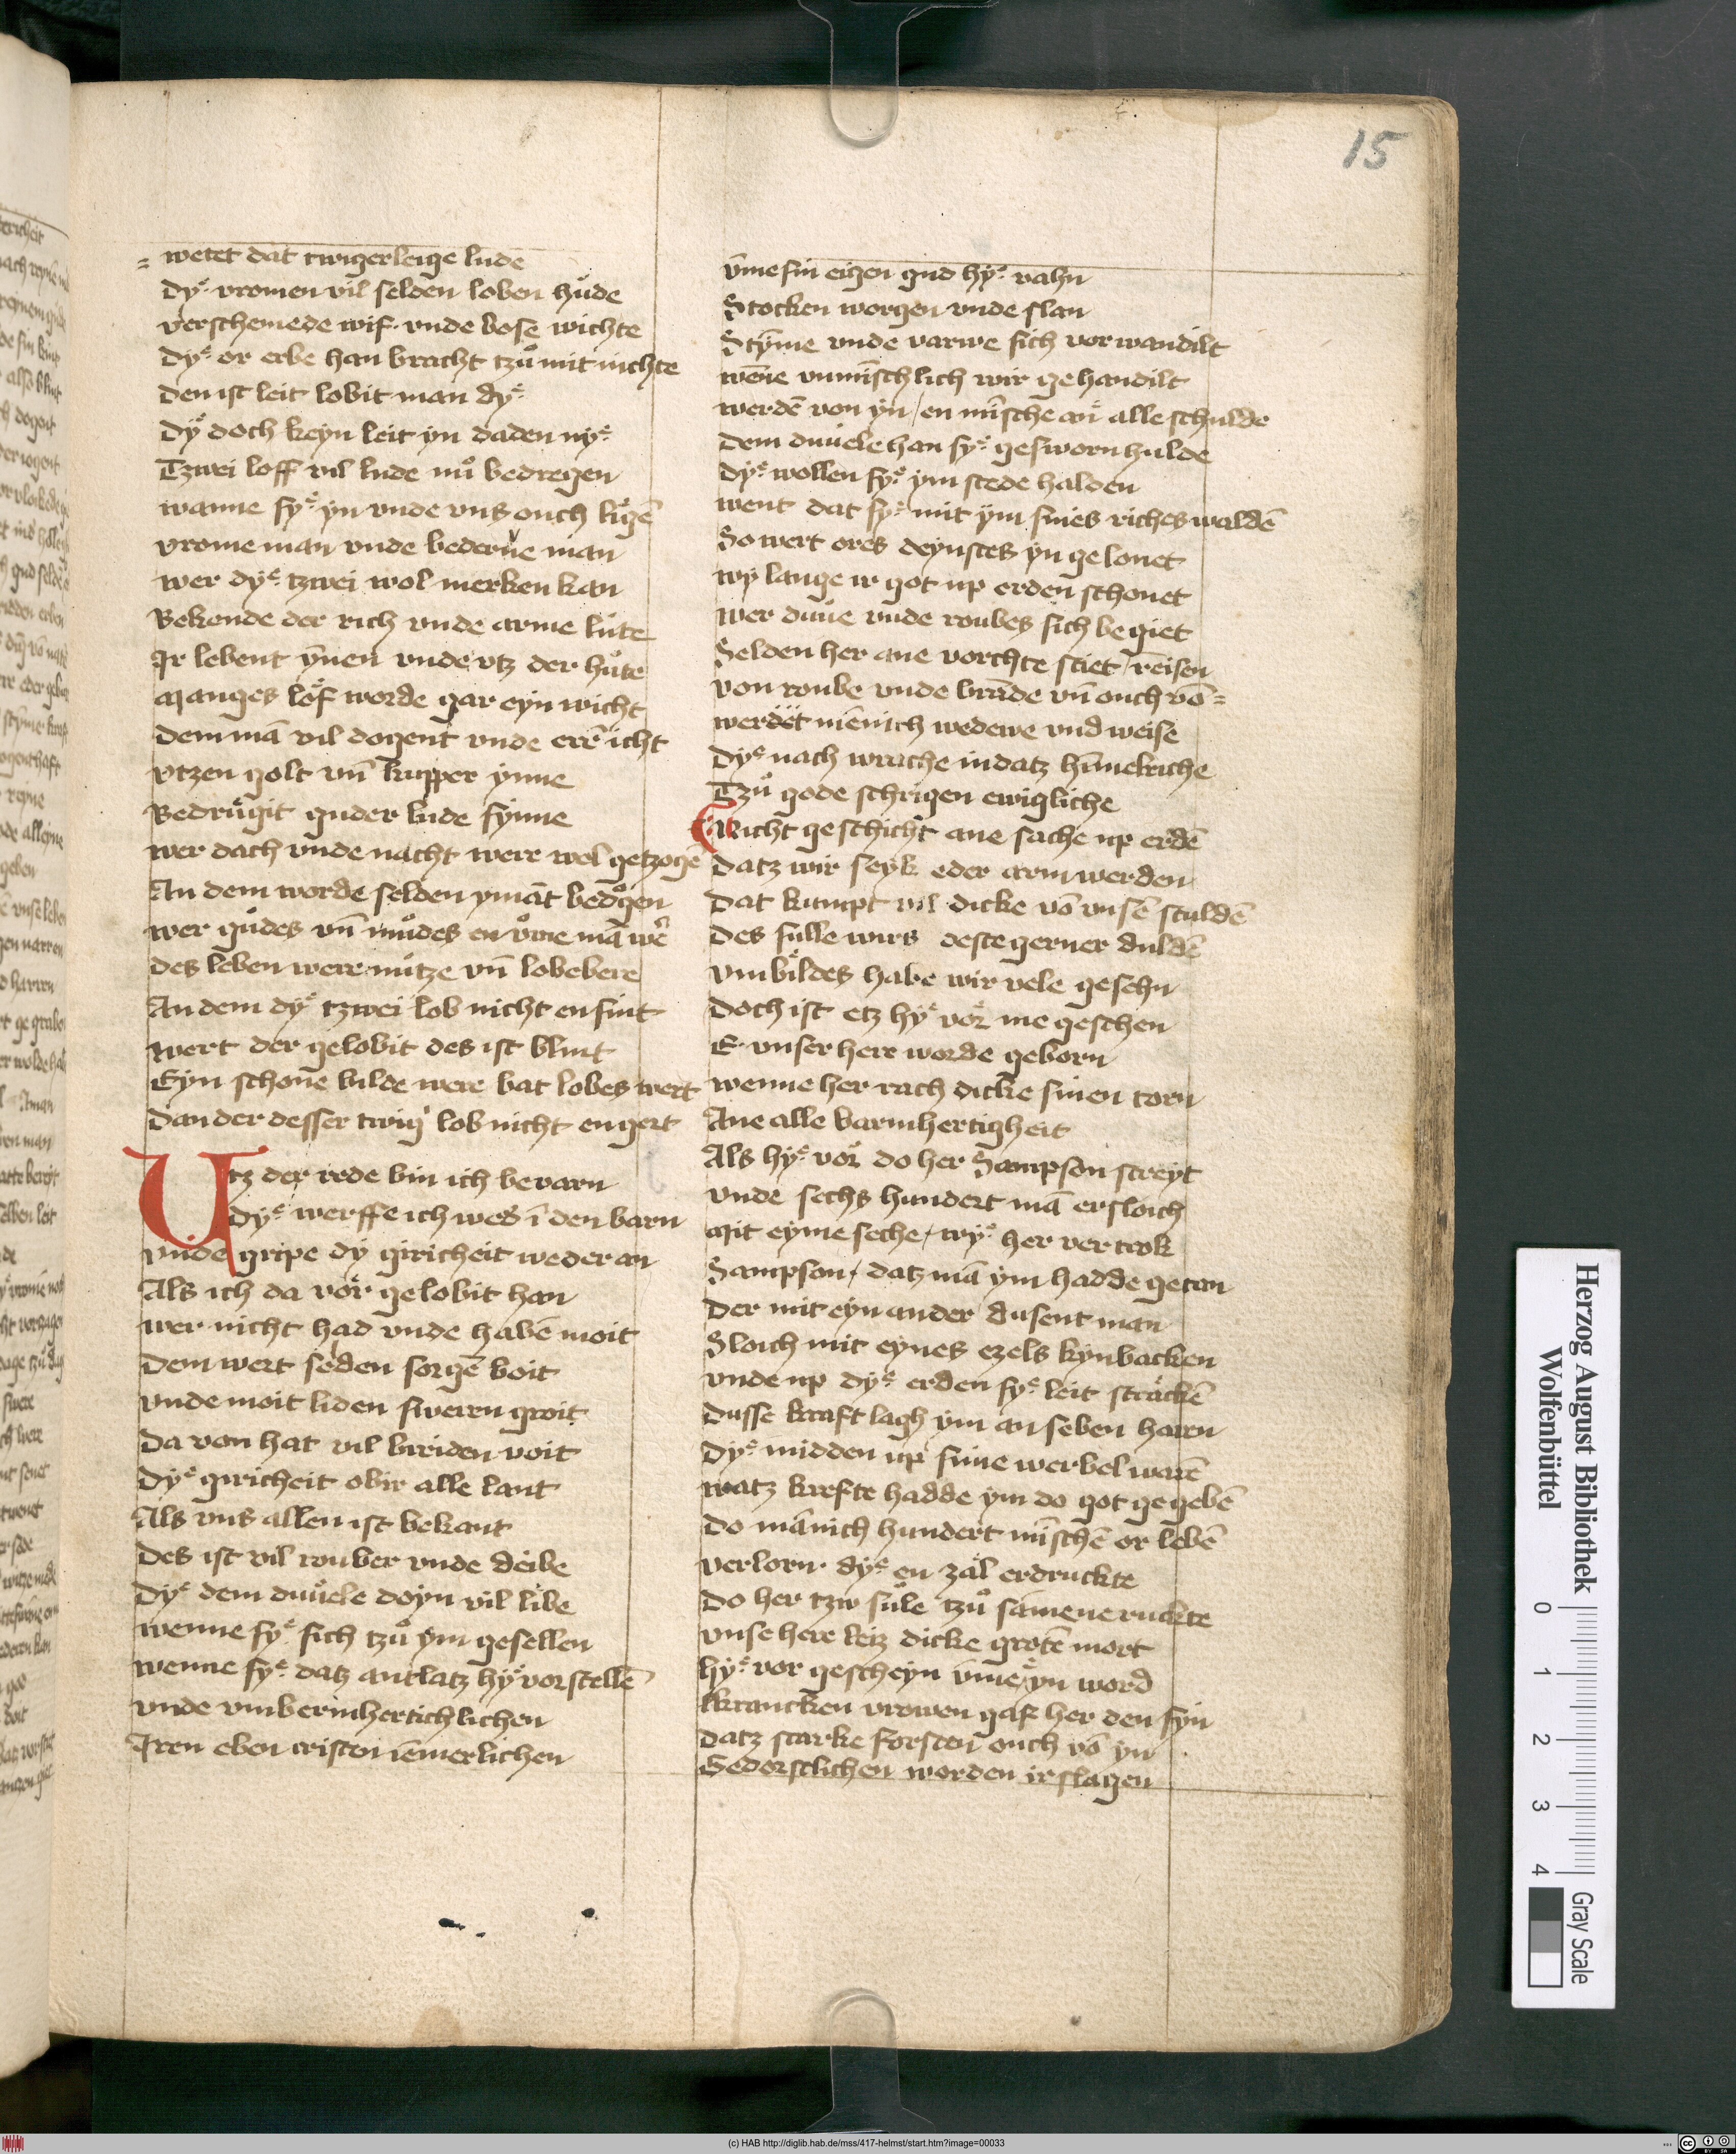 15
= wetet dat twigerleige lude
dyͤ vromen vil selden loben huͦde
verschemede wif vnde bose wichte
dyͤ or erbe han bracht tzuͦ mit nichte
den ist leit lobit man dyͤ
dyͤ doch keyn leit yn daden nyͤ
Tzwei loff vil lude nuͦ bedregen
wanne syͤ yn vnde vns ouch ligē
vrome man vnde bederue man
wer dyͤ tzwei wol merken kan
Bekende der rich vnde arme luͤte
Jr lebent ynnen vnde vtz der huͤte
Manges lof worde gar eyn wicht
dem mā vil dogent vnde erē icht
vtzen golt vn̄ kupper ynne
Bedruͤgit guder lude synne
wer dach vnde nacht were wol getzogē
An dem worde selden ymāt bedͦgen
wer guͦdes vn̄ muͦdes en vͦme mā wē
des leben were nuͤtze vn̄ lobebere
An dem dyͤ tzwei lob nicht en sint
wert der gelobit des ist blint
Eyn schone bilde were bat lobes wert
dan der desser twig lob nicht en gert
Utz der rede bin ich bevarn
dyͤ werffe ich wed ī den barn
vnde gripe dy giricheit weder an
Als ich da voͤr gelobit han
wer nicht had vnde habē moit
dem wert selden sorgē boit
vnde moit liden swern groit
da von hat vil briden voit
dyͤ giricheit obir alle lant
Als vns allen ist bekant
des ist vil rouber vnde deibe
dyͤ dem duuͤele doyn vil libe
wenne syͤ sich tzuͦ ym gesellen
wenne syͤ datz antlatz hyͤ vorstellē
vnde vmbermhertichlichen
Jren eben cristen iemerlichen
vmme sin eigen gud hyͤ vahn
Stocken worgen vnde slan
Stymme vnde varwe sich vorwandilt
wēne vnmīschlich wir gehandilt
werdē von yn / en mīsche an alle schulde
dem duuele han syͤ gesworn hulde
dyͤ wollen syͤ ym stede halden
went dat syͤ mit ym sines riches waldē
So wert ores deynstes yn gelonet
wy lange ir got up erden schonet
wer duue vnde roubes sich begiet
Selden her ane vorchte stiet / reisen
von roube vnde brāde vn̄ ouch vō =
werdet mēnich wedewe vnd weise
dyͤ nach wrache in datz hīmelriche
Tzuͦ gode schrigen ewigliche
Nicht geschicht ane sache up erdē
datz wir seyk eder arm werden
dat kumpt vil dicke vō vnsē sculdē
des sulle wirs deste gerner duldē
vmbildes habe wir vele gesehn
doch ist etz hyͤ voͤr me geschen
E vnser here worde geborn
wenne her rach dicke sinen torn
Ane alle barmhertigheit
Als hyͤ voͤr do her Sampson streyt
vnde sechs hundert mā ersloich
Mit eyme seche / wyͤ her vertrok
Sampson / datz mā ym hadde getan
der mit eyn ander dusent man
Sloich mit eynes ezels kynbacken
vnde up dyͤ erden syͤ leit strackē
dusse kraft lagh ym an seben harn
dyͤ midden up sime werbel warē
watz krefte hadde ym do got gegebē
do mānich hundert mīschē or lebē
verlorn dyͤ en zal erdruckte
do her tzw sule tzuͦ samene ruckte
vnse here leiz dicke grotē mort
hyͤ vor gescheyn vmme yn word
krancken vrowen gaf her den syn
datz starke forsten ouch vō yn
Gedorstlichen worden irslagen
Herzog August Bibliothek
Wolfenbüttel
0 1 2 3 4
Gray Scale
(c) HAB http://diglib.hab.de/mss/417-helmst/start.htm?image=00033